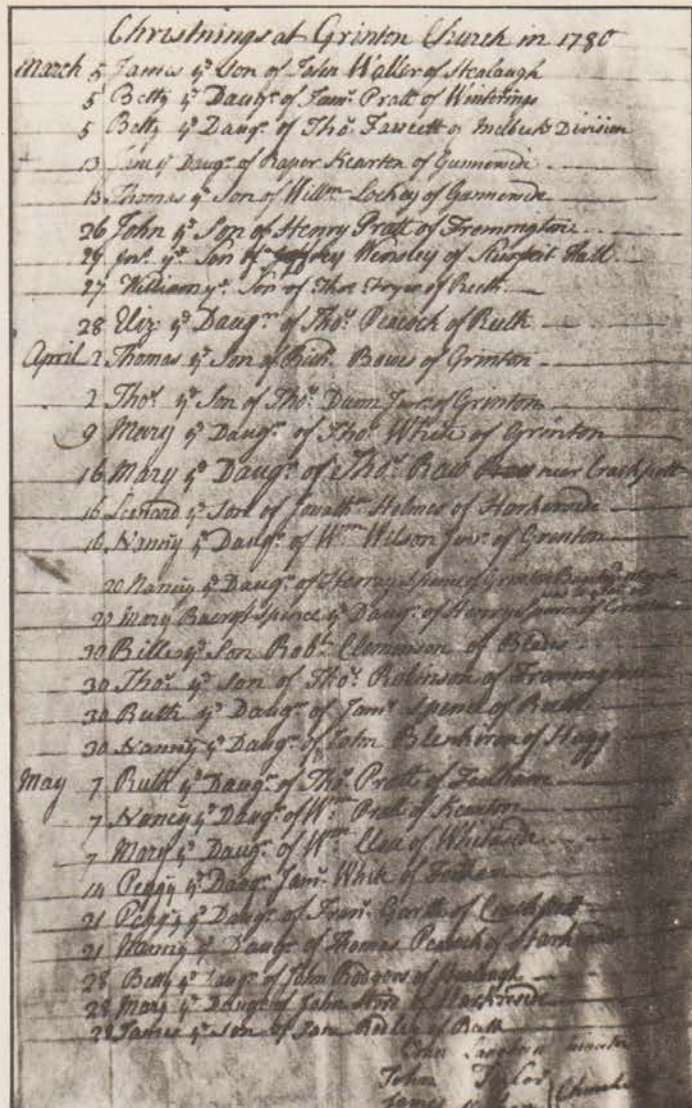 Christnings at Grinton Church in 1780
March 5 James yᵉ Son of John Waller of Healaugh
5 Betty yᵉ Daugʳ of Jamˢ Pratt of Winterings
5 Betty yᵉ Daugʳ of Thoˢ Fawcett of Melbecks Division
13 Jane yᵉ Daugʳ of Raper Kearton of Gunnerside
13 Thomas yᵉ Son of Willᵐ Lockey of Gunnerside
26 John yᵉ Son of Henry Pratt of Fremington
29 Jnᵒ yᵉ Son of Wensley of Hall
27 William yᵉ Son of Thoˢ of Reeth
28 Eliz yᵉ Daugʳ of Thoˢ Peacock of Ruth
April 2 Thomas yᵉ Son of Richᵈ Bowes of Grinton
2 Thoˢ yᵉ Son of Thoˢ Junʳ of Grinton
9 Mary yᵉ Daugʳ of Thoˢ White of Grinton
16 Mary yᵉ Daugʳ of Thoˢ Raw near Crackpott
16 Leonard yᵉ Son of Jonathⁿ Helmes of Harkerside
16 Nanny yᵉ Daugʳ of Wᵐ Wilson Junʳ of Grinton
20 Nancy yᵉ Daugʳ of Henry Spence of Grinton
20 Mary Spence yᵉ Daugʳ of Henry Spence of Grinton
30 Billy yᵉ Son Robᵗ Cleminson of
30 Thoˢ yᵉ Son of Thoˢ Robinson of Fremington
30 Ruth yᵉ Daugʳ of Jamˢ Spence of Ruth
30 Nanny yᵉ Daugʳ of John Blenkiron of Hagg
May 7 Ruth yᵉ Daugʳ of Thoˢ Pratt of Feetham
7 Nancy yᵉ Daugʳ of Wᵐ Pratt of Kearton
7 Mary yᵉ Daugʳ of Wᵐ of Whiteside
14 Peggy yᵉ Daugʳ Jamˢ White of Feetham
21 Peggy yᵉ Daugʳ of Franˢ Garth of Crackpott
21 Nanny yᵉ Daugʳ of Thomas Peacock of Harkerside
28 Betty yᵉ Daugʳ of John Rodgers of Healaugh
28 Mary yᵉ Daugʳ of John of Harkerside
28 James yᵉ Son of Jam of Ruth
John Taylor
James